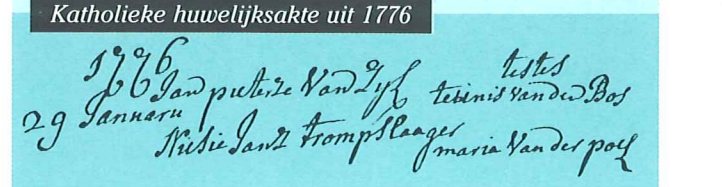 Katholieke huwelijksakte uit 1776
1776
Jan pieterze Van Zyl
29 Januarii
Niesie Jans trompslaager
testes
teunis vander Bos
maria Van der poel